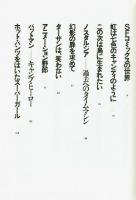 SFコミックスの世界
虹は七色のキャンディのように
この次は鳥に生まれたい
ノスタルジア――過去へのタイムマシン
幻影の扉を求めて
ターザンは、笑わない
アニメーション野郎
バットマン――キャンプ・ヒーロー
ホット・パンツをはいたスーパーガール